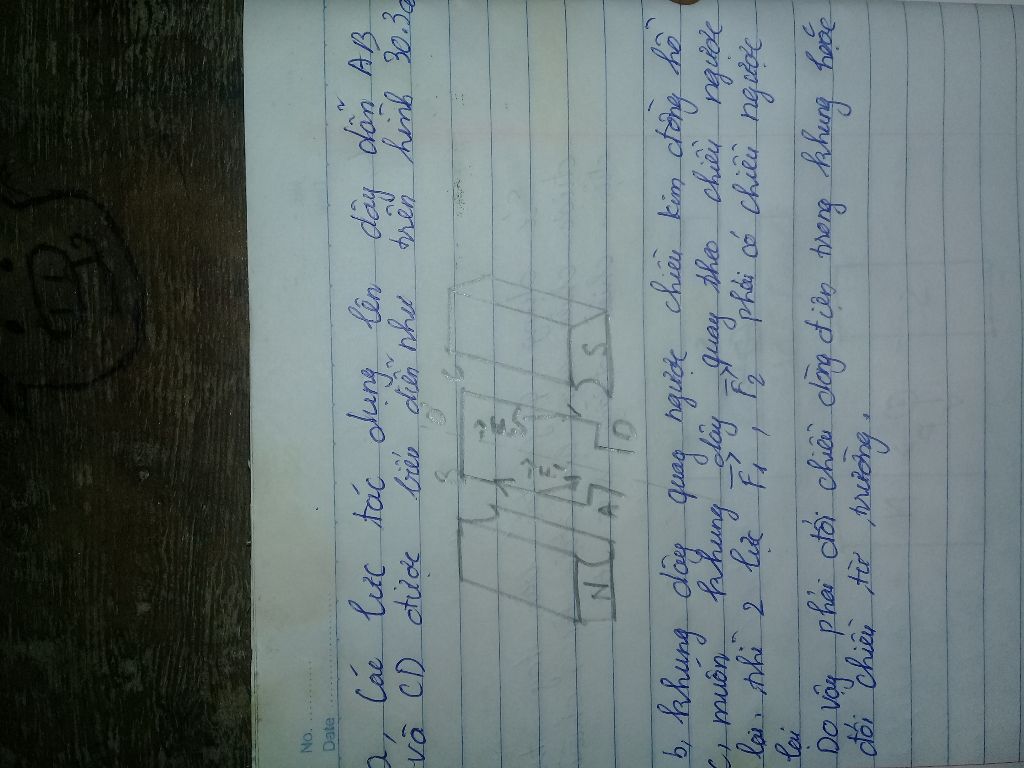 No. ........
Date ........
a, Các lực tác dụng lên dây dẫn AB
và CD được biểu diễn như trên hình 30.3a
N
S
A
D
F1
F2
b, khung dây quay ngược chiều kim đồng hồ
c, muốn khung dây quay theo chiều ngược
lại, thì 2 lực F1, F2 phải có chiều ngược
lại
Do vậy phải đổi chiều dòng điện trong khung hoặc
đổi chiều từ trường.